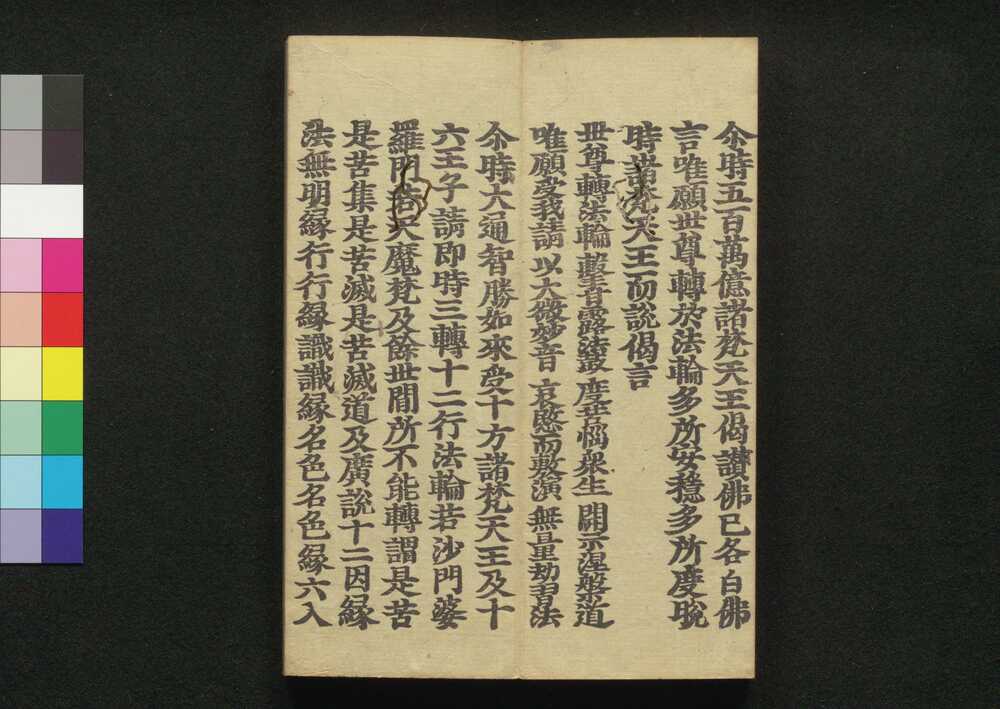 尒時五百萬億諸梵天王偈讃佛已各白佛
言唯願世尊轉於法輪多所安穩多所度脫
時諸梵天王而說偈言
世尊轉法輪 擊甘露法鼓 度苦惱衆生 開示涅槃道
唯願受我請 以大微妙音 哀愍而敷演 無量劫習法
尒時大通智勝如來受十方諸梵天王及十
六王子請即時三轉十二行法輪若沙門婆
羅門若天魔梵及餘世間所不能轉謂是苦
是苦集是苦滅是苦滅道及廣說十二因緣
法無明緣行行緣識識緣名色名色緣六入